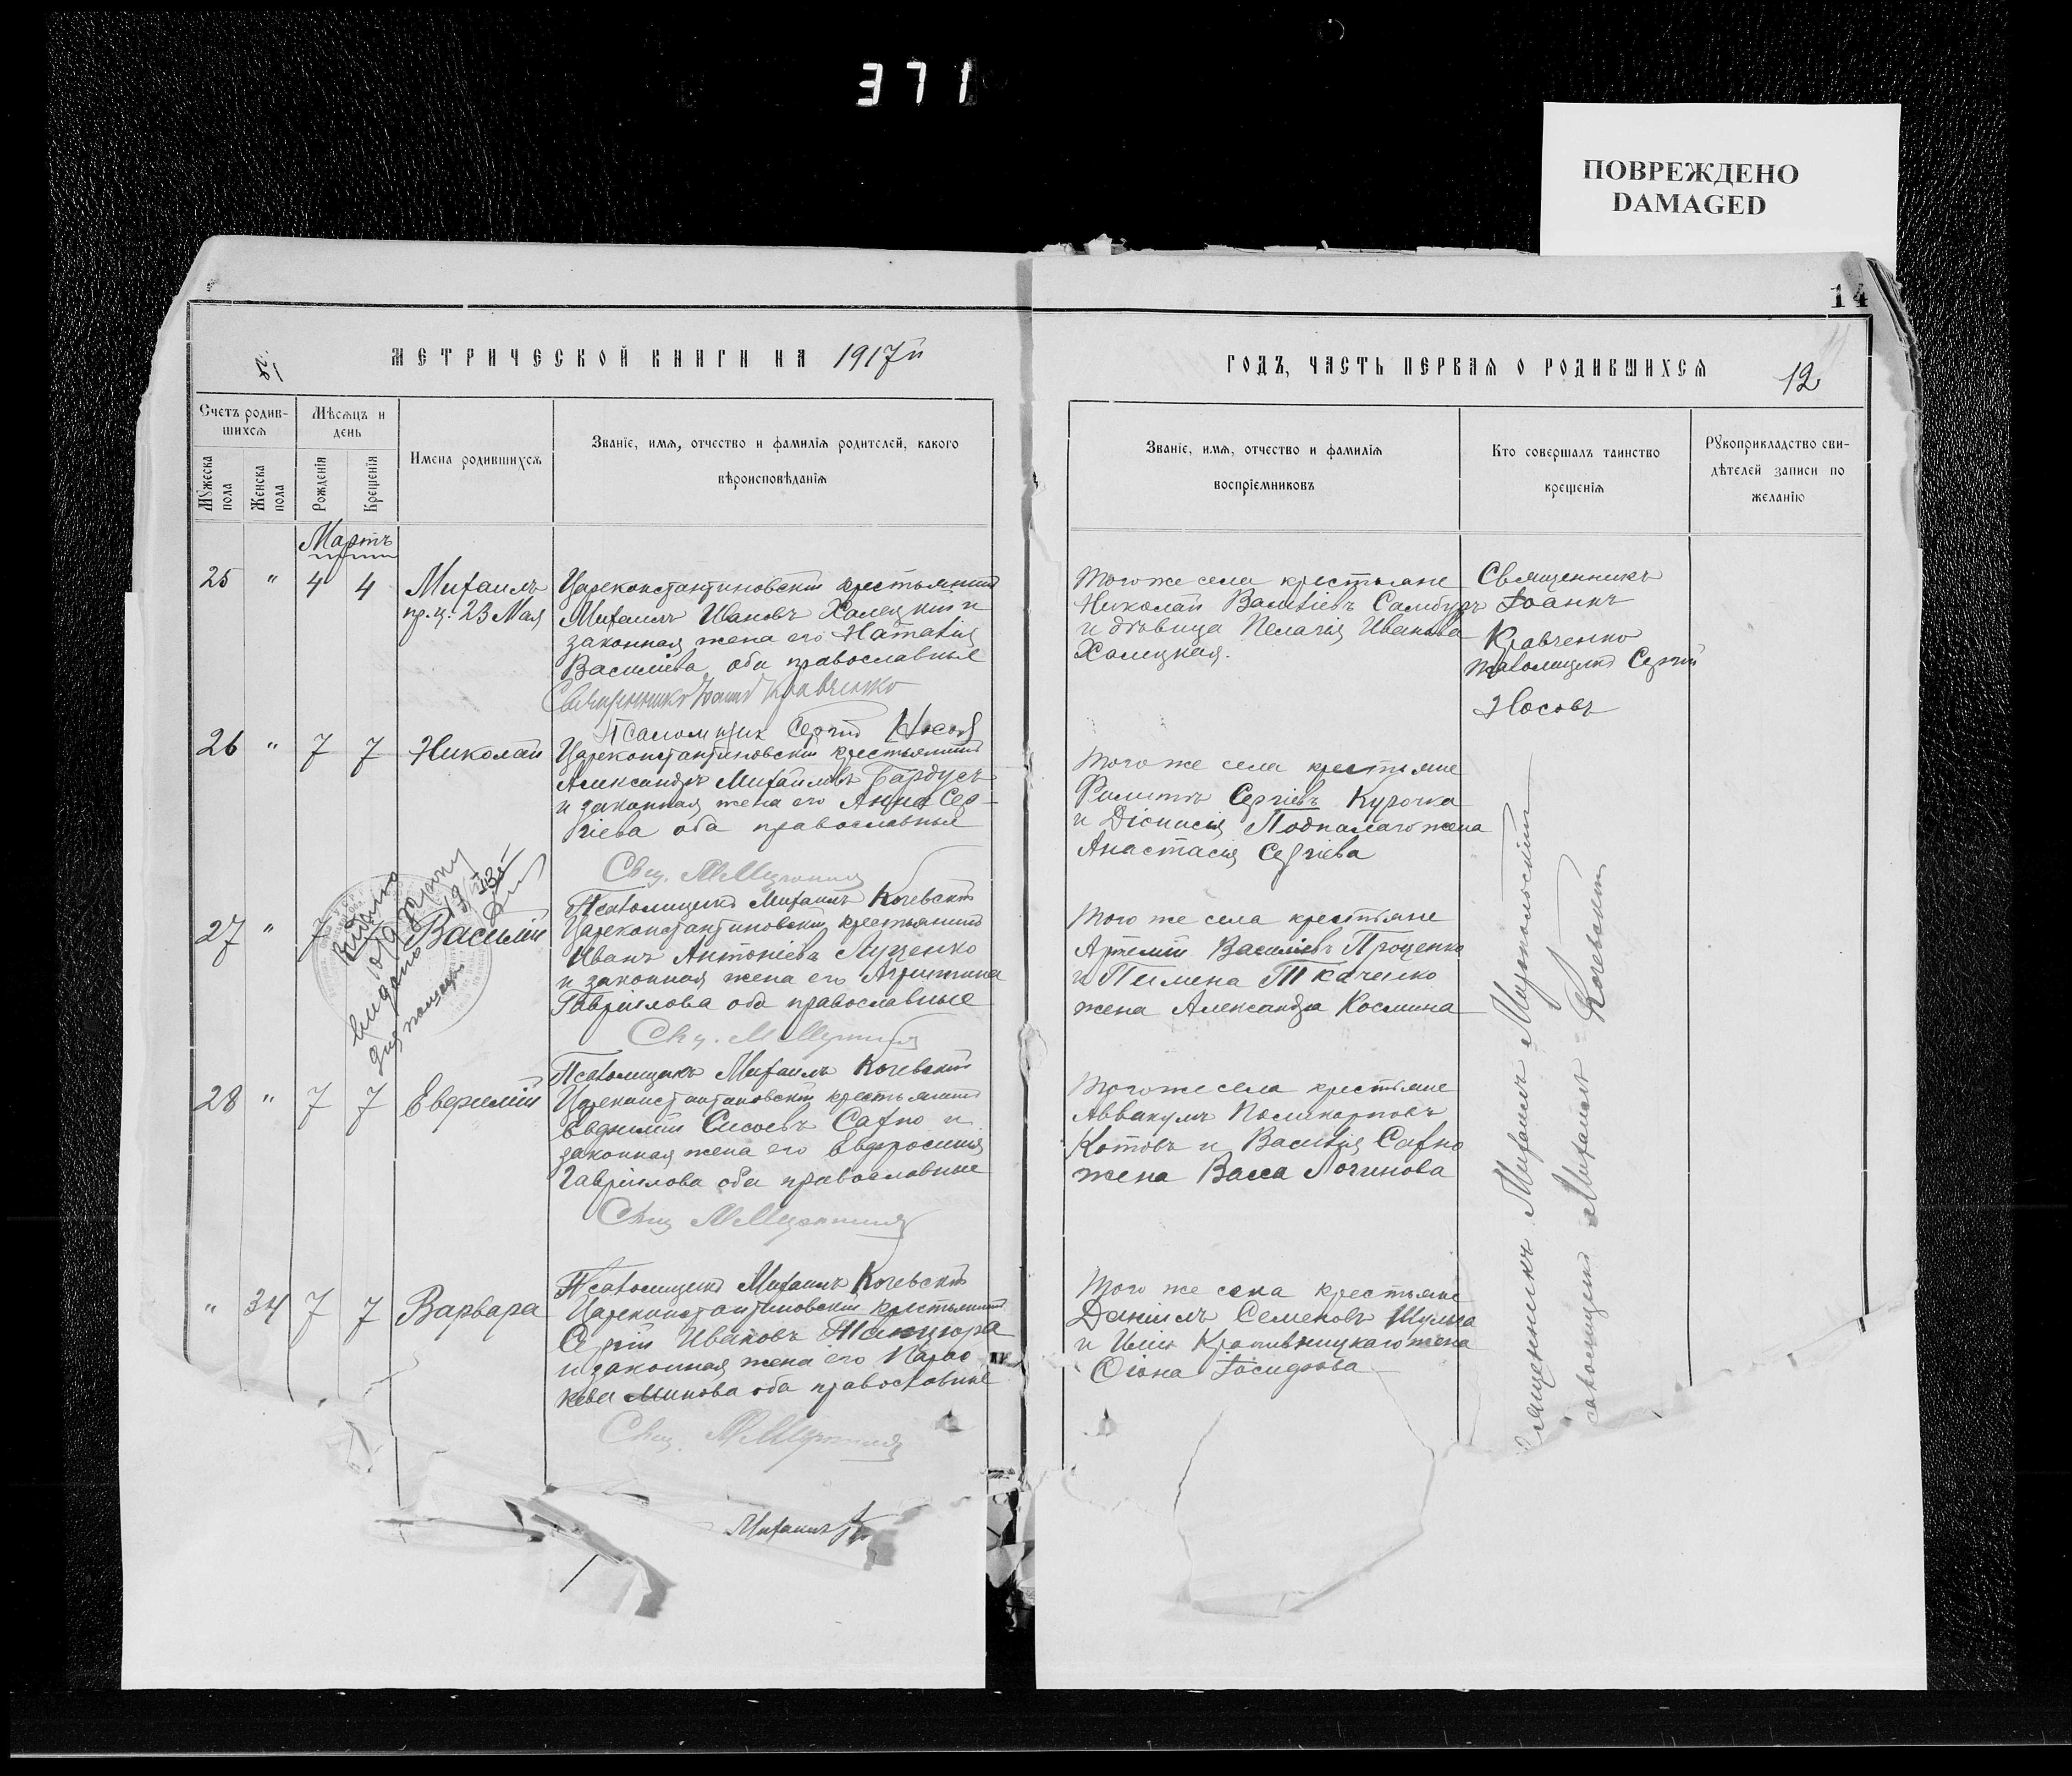 371
ПОВРЕЖДЕНО
DAMAGED
14
МЕТРИЧЕСКОЙ КНИГИ НА 1917й
ГОДЪ, ЧАСТЬ ПЕРВАЯ О РОДИВШИХСЯ
12
Счетъ родив-
шихся
Мѣсяцъ и
день
Имена родившихся
Званіе, имя, отчество и фамилія родителей, какого
вѣроисповѣданія
Мужеска
пола
Женска
пола
Рожденія
Крещенія
Званіе, имя, отчество и фамилія
воспріемниковъ
Кто совершалъ таинство
крещенія
Рукоприкладство сви-
дѣтелей записи по
желанію
Мартъ
25 " 4 4 Михаилъ
пр. ц. 23 Мая
Цареконстантиновскій крестьянинъ
Михаилъ Ивановъ Халецкій и
законная жена его Наталія
Василіева, оба православные
Священникъ Іоаннъ Кравченко
Псаломщик Сергій Носов
Того же села крестьяне
Николай Василіевъ Самбуръ
и дѣвица Пелагія Иванова
Халецкая.
Священникъ
Іоаннъ
Кравченко
псаломщикъ Сергій
Носовъ
26 " 7 7 Николай
Цареконстантиновскій крестьянинъ
Александръ Михайловъ Бардусъ
и законная жена его Анна Сер-
гіева оба православные
Свщ. М
Псаломщикъ Михаилъ Кочевскій
Того же села крестьяне
Филиппъ Сергіевъ Курочка
и Діонисія жена
Анастасія Сергіева
27 " 7 Василій
Цареконстантиновскій крестьянинъ
Иванъ Антоніевъ Луценко
и законная жена его Агриппина
Гавріилова оба православные
Свщ. М
Псаломщикъ Михаилъ Кочевскій
Того же села крестьяне
Артемій Василіевъ Проценко
и Пимена Ткаченко
жена Александра Космина
28 " 7 7 Евфимій
Цареконстантиновскій крестьянинъ
Евфимій Сисоевъ Сахно и
законная жена его Евфросинія
Гавріилова оба православные
Свщ М
Псаломщикъ Михаилъ Кочевскій
Того же села крестьяне
Аввакумъ Поликарповъ
Котовъ и Василія Сахно
жена Васса Логинова
" 34 7 7 Варвара
Цареконстантиновскій крестьянинъ
Сергій Ивановъ Танцюра
и законная жена его Парас
кева Минова оба православные
Свщ. М
Михаилъ
Того же села крестьяне
Даніилъ Семеновъ Шульга
и Иліи Кропивницкаго жена
Священникъ Михаилъ
псаломщикъ Михаилъ Кочевскій